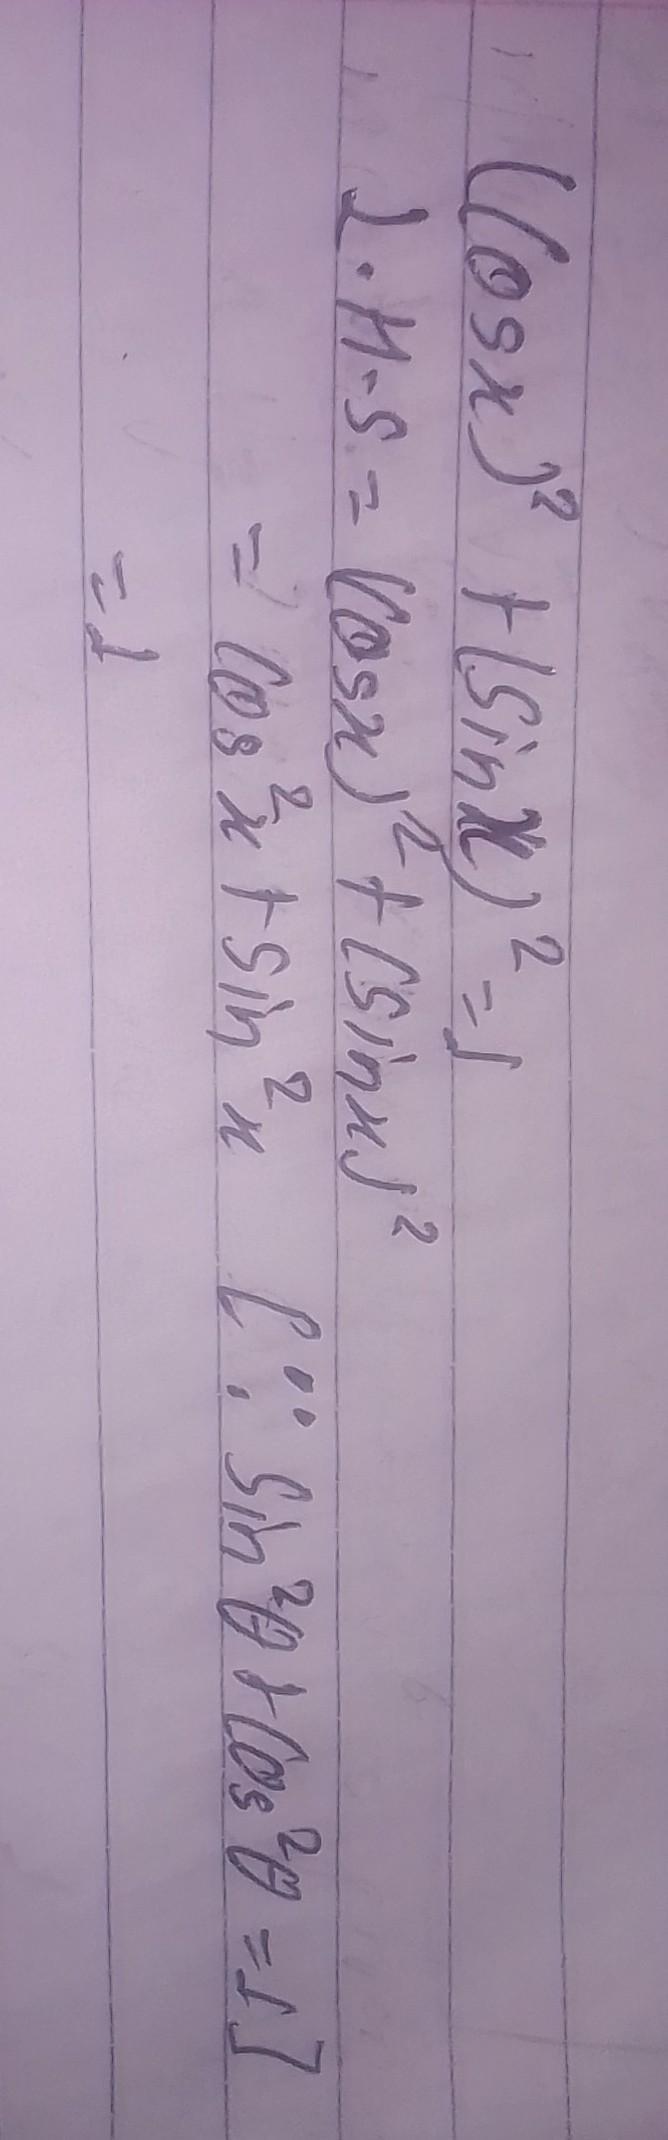 (Cosx)² + (Sinx)² = 1
L.H.S = (Cosx)² + (Sinx)²
= Cos²x + Sin²x [∵ Sin²θ + Cos²θ = 1]
= 1